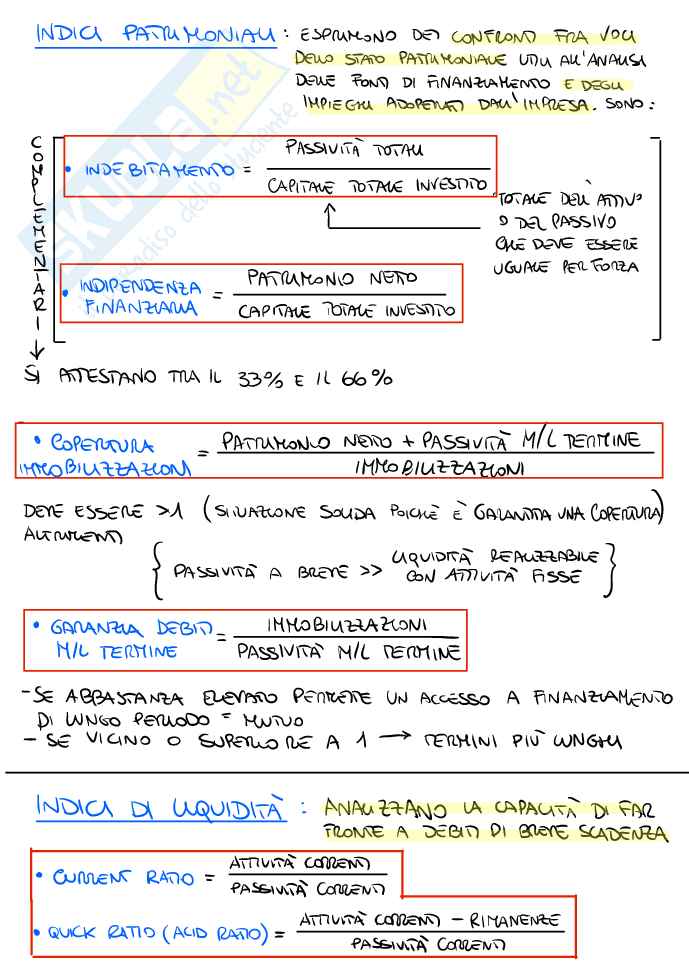 INDICI PATRIMONIALI : ESPRIMONO DEI CONFRONTI FRA VOCI
DELLO STATO PATRIMONIALE UTILI ALL'ANALISI
DELLE FONTI DI FINANZIAMENTO E DEGLI
IMPIEGHI ADOPERATI DALL'IMPRESA. SONO:
COMPLEMENTARI
• INDEBITAMENTO = PASSIVITÀ TOTALI
CAPITALE TOTALE INVESTITO
TOTALE DELL'ATTIVO
O DEL PASSIVO
CHE DEVE ESSERE
UGUALE PER FORZA
• INDIPENDENZA FINANZIARIA = PATRIMONIO NETTO
CAPITALE TOTALE INVESTITO
SI ATTESTANO TRA IL 33% E IL 66%
• COPERTURA IMMOBILIZZAZIONI = PATRIMONIO NETTO + PASSIVITÀ M/L TERMINE
IMMOBILIZZAZIONI
DEVE ESSERE >1 (SITUAZIONE SOLIDA POICHÈ È GARANTITA UNA COPERTURA)
ALTRIMENTI
{ PASSIVITÀ A BREVE >> LIQUIDITÀ REALIZZABILE
CON ATTIVITÀ FISSE }
• GARANZIA DEBITI M/L TERMINE = IMMOBILIZZAZIONI
PASSIVITÀ M/L TERMINE
- SE ABBASTANZA ELEVATO PERMETTE UN ACCESSO A FINANZIAMENTO
DI LUNGO PERIODO = MUTUO
- SE VICINO O SUPERIORE A 1 → TERMINI PIÙ LUNGHI
INDICI DI LIQUIDITÀ : ANALIZZANO LA CAPACITÀ DI FAR
FRONTE A DEBITI DI BREVE SCADENZA
• CURRENT RATIO = ATTIVITÀ CORRENTI
PASSIVITÀ CORRENTI
• QUICK RATIO (ACID RATIO) = ATTIVITÀ CORRENTI - RIMANENZE
PASSIVITÀ CORRENTI
SKUOLA.net
il paradiso dello studente